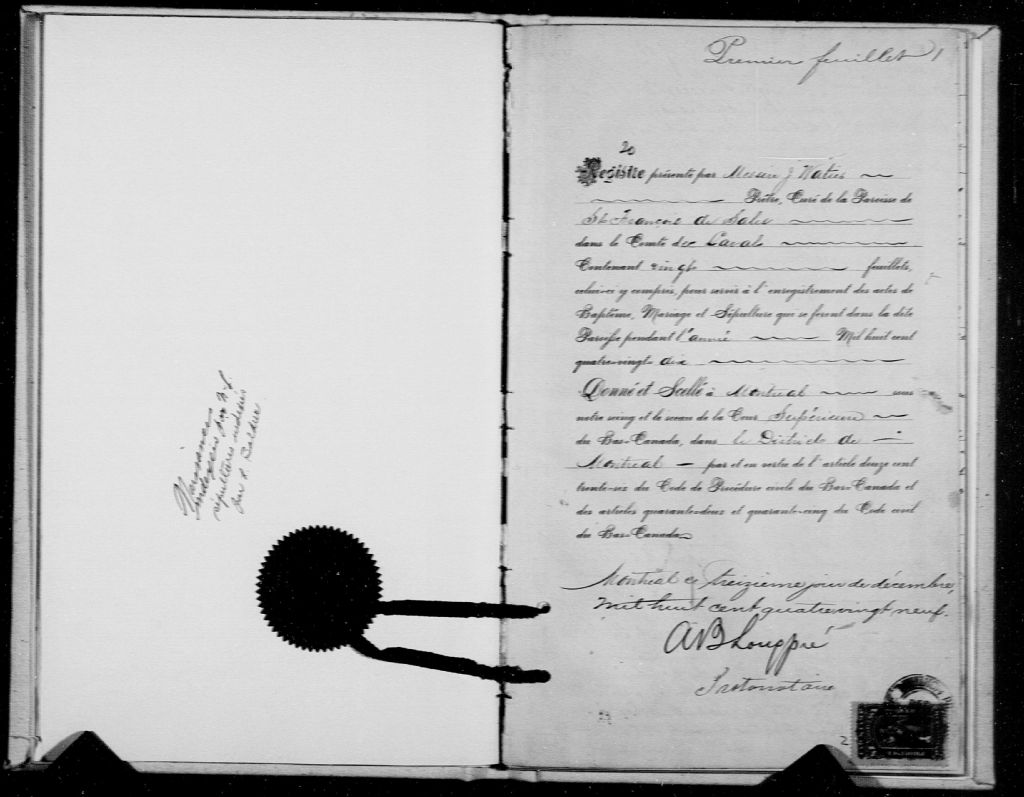 Naissances
indexées par
sépultures indexées
par
Premier feuillet 1
20
Registre présenté par Messire J. Watier
Prêtre, Curé de la Paroisse de
St François de Sales
dans le Comté de Laval
Contenant vingt feuillets,
celui-ci y compris, pour servir à l'enregistrement des actes de
Baptême, Mariage et Sépulture qui se feront dans la dite
Paroisse pendant l'année Mil huit cent
quatre-vingt-dix
Donné et Scellé à Montréal sous
notre seing et le sceau de la Cour Supérieure
du Bas-Canada, dans le District de
Montréal par et en vertu de l'article douze cent
trente-six du Code de Procédure civile du Bas-Canada et
des articles quarante-deux et quarante-cinq du Code civil
du Bas-Canada
Montréal ce treizieme jour de décembre,
mil huit cent quatre vingt neuf.
A B Longpré
Protonotaire
2